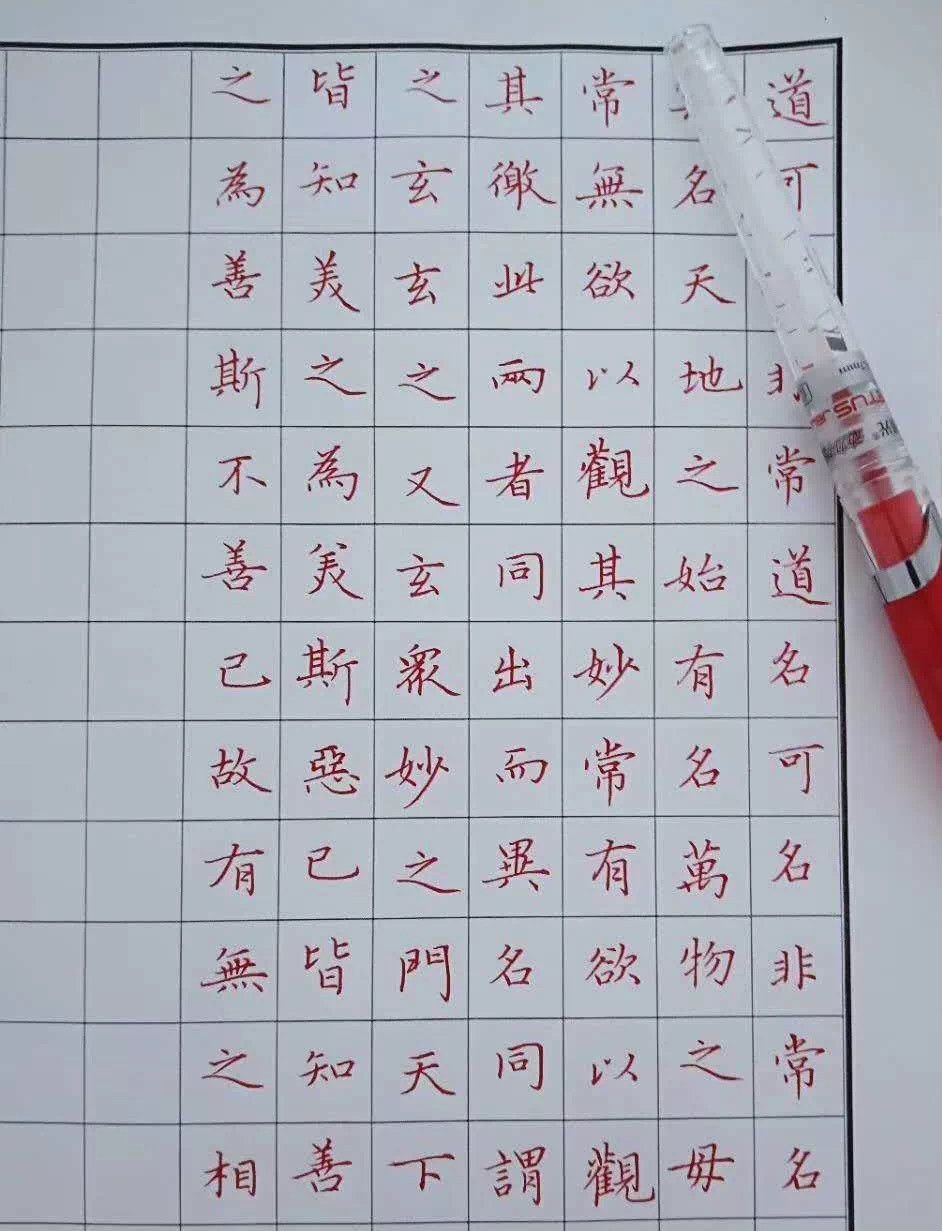 道可非常道名可名非常名
名天地之始有名萬物之母
常無欲以觀其妙常有欲以觀
其徼此兩者同出而異名同謂
之玄玄之又玄眾妙之門天下
皆知美之為美斯惡已皆知善
之為善斯不善已故有無之相